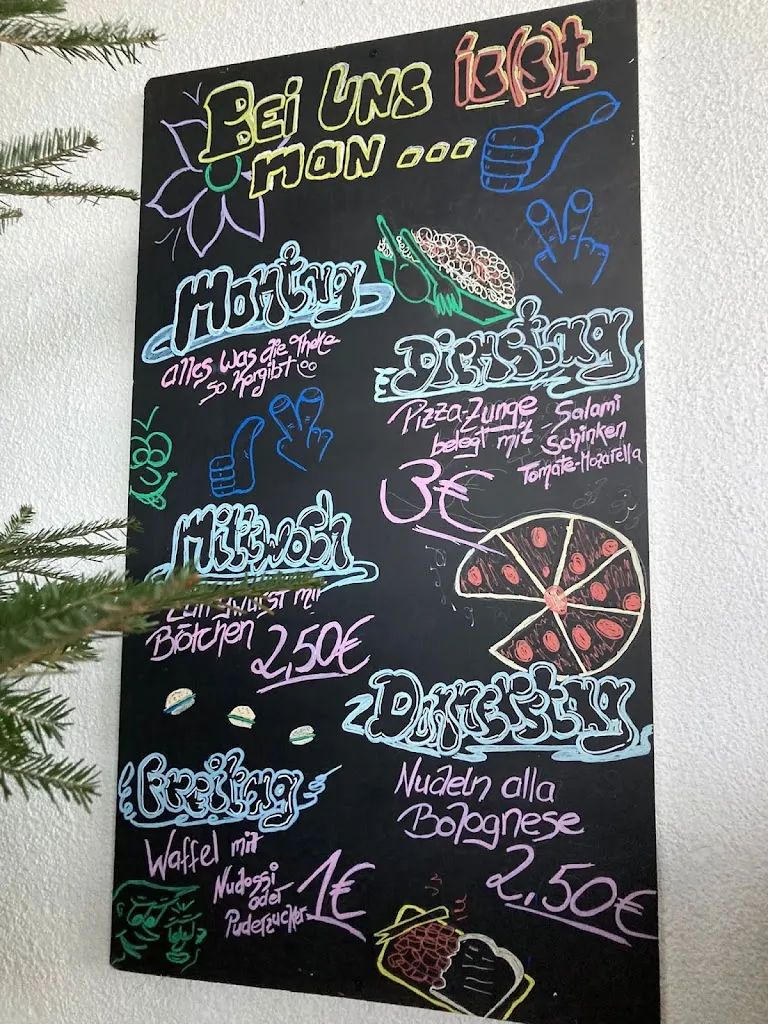 Bei Uns is(s)t
man ...
Montag
alles was die Theke
so hergibt
Dienstag
Pizza-Zunge
belegt mit
Salami
Schinken
Tomate-Mozarella
3€
Mittwoch
mit
Brötchen
2,50€
Donnerstag
Nudeln alla
Bolognese
2,50€
Freitag
Waffel mit
Nudossi
oder
Puderzucker
1€